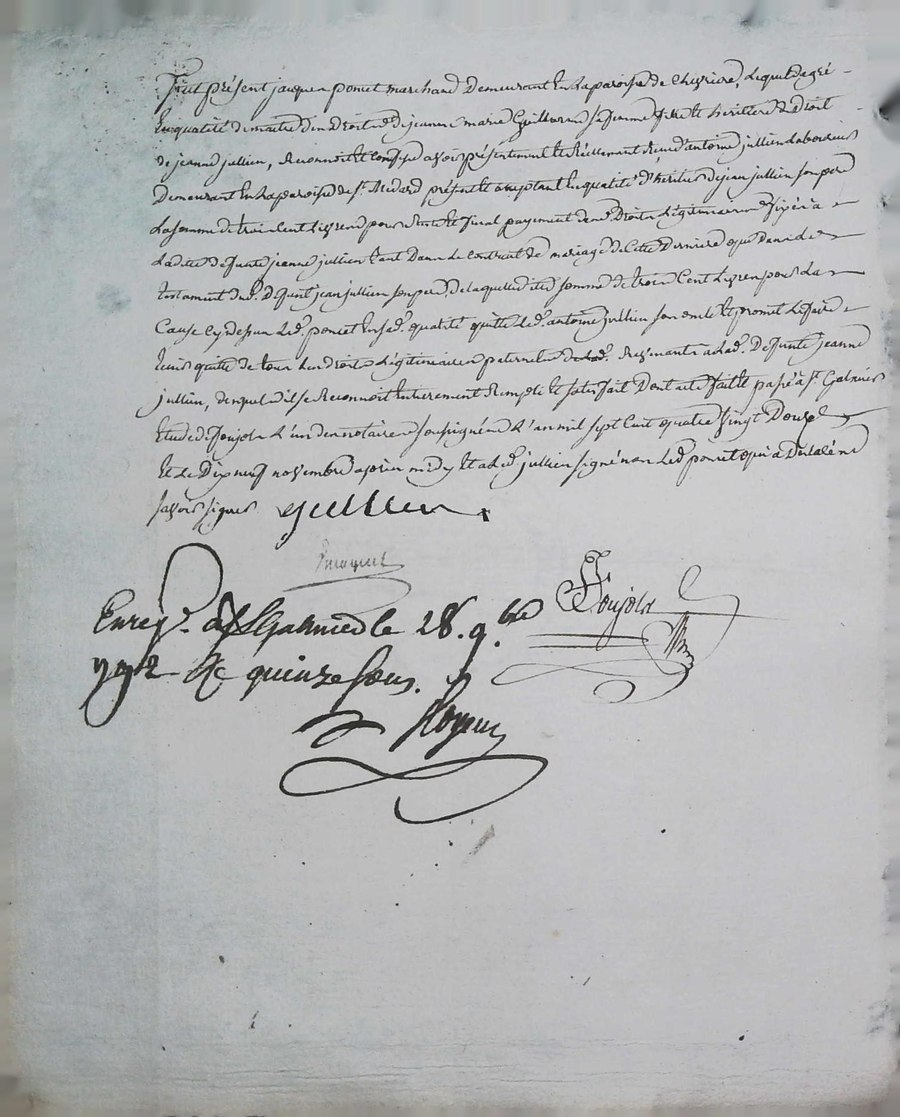 Fut présent jacque poncet marchand Demeurant En la paroisse de Chevriere, Lequel de gré
En qualité de maitre des Droits de jeanne marie Guilleron sa femme fille et heritiere de droit
de jeanne jullien, Reconnoit et Confesse avoir présentement et Réellement Reçu d'antoine jullien Laboureur
Demeurant En la paroisse de St. Médard présent et acceptant En qualité d'heritier de jean jullien son pere
La somme de trois Cent Livres pour Reste et final payement des Droits Légitimaires fixés à
Ladite défunte jeanne jullien tant Dans Le Contrat de mariage de Cette Derniere que Dans le
testament dud. Défunt jean jullien son pere, de laquelle dite somme de trois Cent Livres pour La
Cause cy dessus Led. poncet En sad. qualité quitte Led. antoine jullien son oncle Et promet Le faire
tenir quitte de tous Les droits Légitimaires paternels Revenants à Lad. Défunte jeanne
jullien, desquels il se Reconnoit Entierement Rempli Et satisfait Dont acte fait Et passé à St. Galmier
Etude de Soujola L'un des notaires soussignés L'an mil sept Cent quatre vingt Douze
Et Le Dix neuf novembre après midy Et a Led. jullien signé non Led. poncet qui a Déclaré ne
savoir signer jullien
Soujola
Enreg. à St Galmier le 28. 9.bre
1792 Rc quinze sous.